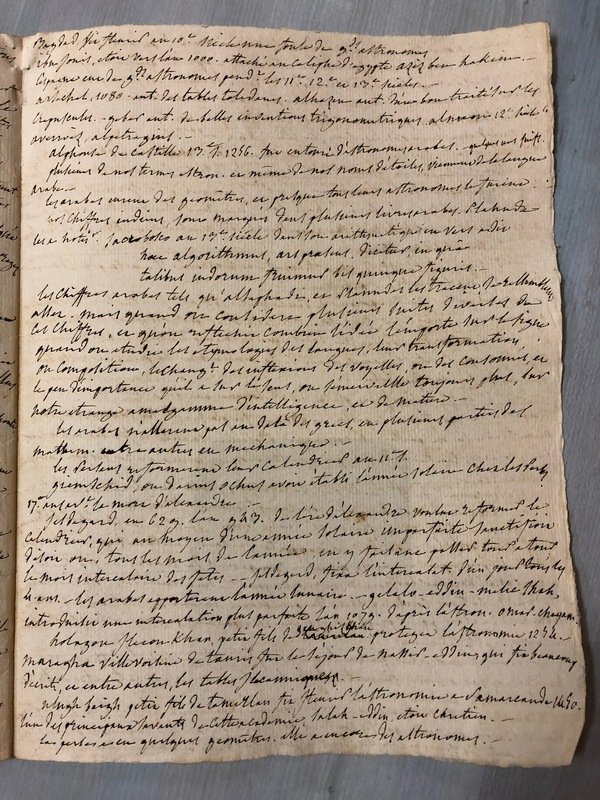 Bagdad fit fleurir au 10.e siècle une foule de g.ds astronomes
ibn jonis, étoit vers l'an 1000. attaché au caliphe d'egypte aziz ben hakim. _
l'espagne eut de g.ds astronomes pend.t les 11.e 12.e et 13.e siècles. _
arsachel, 1080. aut. des tables toledanes. alhazen aut. d'un bon traité sur les
crepuscules. geber aut. de belles inventions trigonometriques. almansor 12.e siècle
averroës, alpetragius. _
alphonse de Castille 13.e s. 1256. fut entouré d'astronomes arabes.
plusieurs de nos termes astron. et même de nos noms d'étoiles, viennent de la langue
arabe. _
les arabes eurent des geomètres, et presque tous leurs astronomes le furent.
nos chiffres indiens, sont marqués dans plusieurs livres arabes. Planude
les a notés. Sacrobosco au 13.e siècle dans son arithmetique en vers a dit
haec algorithmus, ars praesens dicitur in quâ
talibus indorum fruimur bis quinque figuris. _
les chiffres arabes tels qu'alsephadi, et Planudes les tracent
mais quand on considère plusieurs suites diverses de
ces chiffres, et qu'on reflechit combien l'idée l'emporte sur le signe
quand on etudie les etymologies des langues, leur transformation,
ou composition, le chang.t des inflexions des voyelles, ou des consonnes, et
le peu d'importance qu'il a sur le sens, on s'émerveille toujours plus, sur
notre etrange amalgamme d'intelligence, et de matière. _
les arabes n'allerent pas au delà des grecs, en plusieurs parties des
mathem. entre autres en mechanique. _
les Persans reformerent leur Calendrier au 11.e s.
giemschid, ou darius Ochus avoit établi l'année solaire chez les
ans av.t la mort d'alexandre. _
jesdegerd, en 629. l'an de l'ère d'alexandre voulut reformer le
calendrier, qui au moyen d'une année solaire imparfaite
tous les mois de l'année, en y faisant passer tour à tour
le mois intercalaire des fêtes _ jesdegerd, fixa l'intercalat. d'un jour tous les
4 ans. _ les arabes apporterent l'année lunaire. _ gelalo-eddin-melic shah,
introduisit une intercalation plus parfaite l'an 1079. d'après l'astron. omar-cheyam.
holagou Ilecou-Khan, petit fils de protegea l'astronomie 1254. _
maragha ville voisine de tauris fut le séjour de nassir-eddin, qui fit beaucoup
d'écrits, et entre autres, les tables
ulugh beigh petit fils de tamerlan fit fleurir l'astronomie à Samarcande 1450.
l'un des principaux savants de cette academie, Salah-eddin, étoit chretien. _
la perse a eu quelques geomètres. elle a encore des astronomes. _